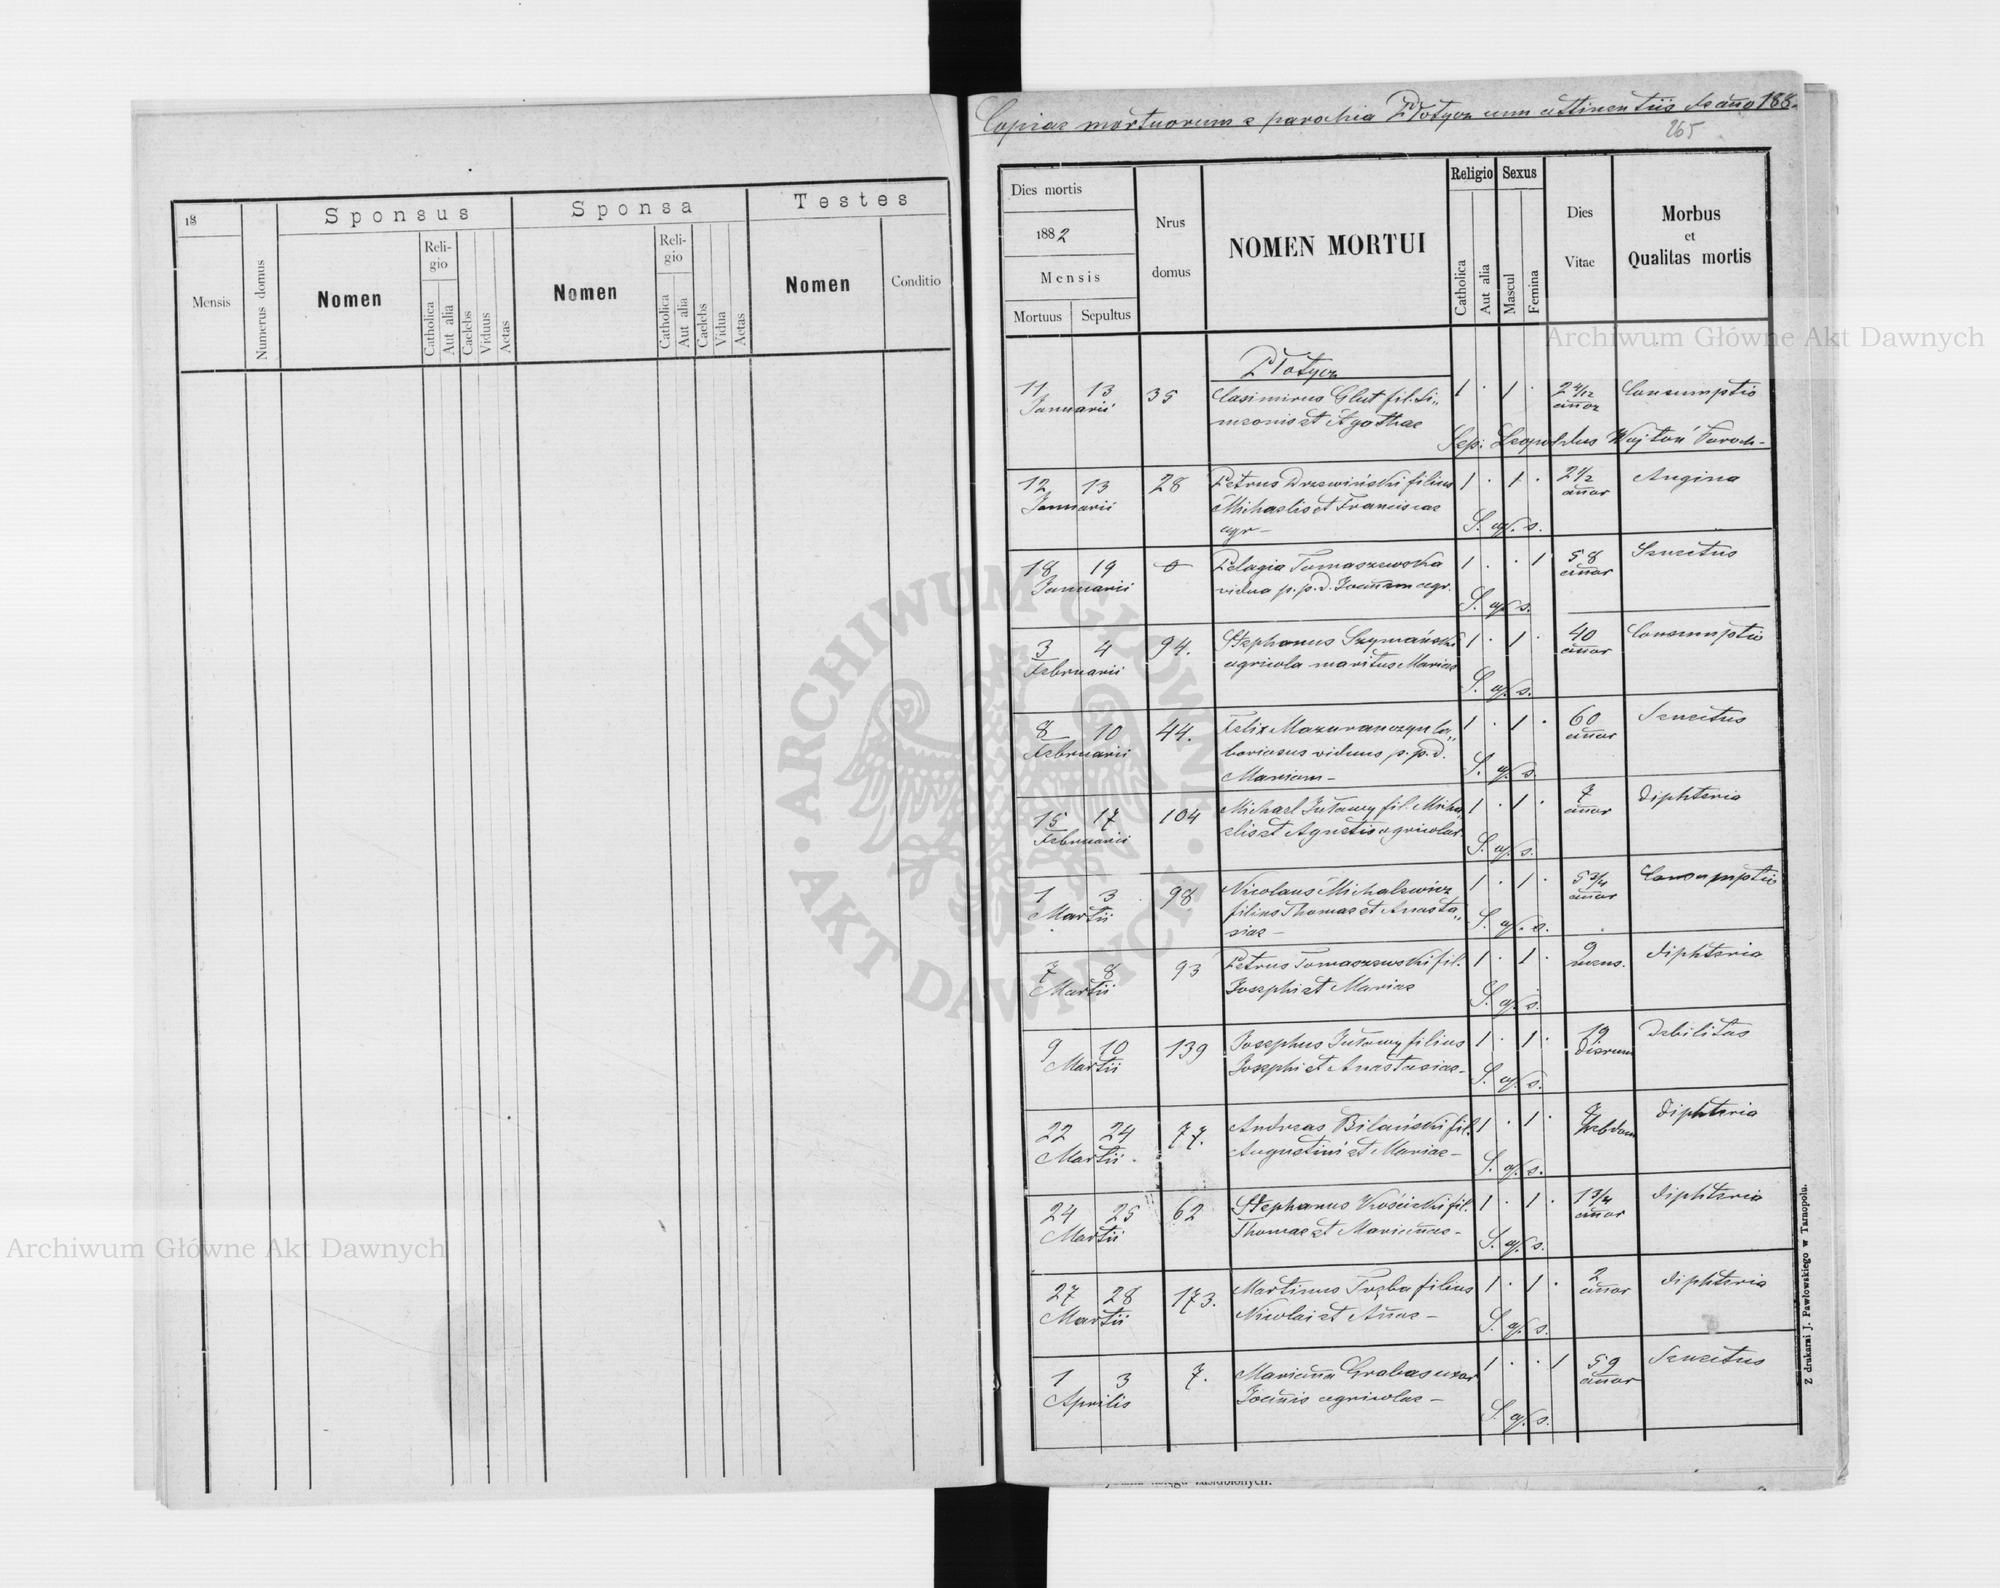 18
Mensis
Numerus domus
Sponsus
Nomen
Reli-
gio
Catholica
Aut alia
Caelebs
Viduus
Aetas
Sponsa
Nomen
Reli-
gio
Catholica
Aut alia
Caelebs
Vidua
Aetas
Testes
Nomen
Conditio
Copiae mortuorum e parochia Płotycz cum attinentiis de año 188
265
Dies mortis
1882
Mensis
Mortuus Sepultus
Nrus
domus
NOMEN MORTUI
Religio
Catholica
Aut alia
Sexus
Mascul
Femina
Dies
Vitae
Morbus
et
Qualitas mortis
Płotycz
11 13 35 Casimirus Glut fil. Si„ 1 · 1 · 2 4/12 Consumptio
Januarii meonis et Agathae añor
Sep: Leopoldus Wojtoń Paroch-
12 13 28 Petrus Drzewiński filius 1 · 1 · 2 1/2 Angina
Januarii Michaelis et Franciscae añor
agr- S. q. s.
18 19 Pelagia Tomaszewska 1 · · 1 58 Senectus
Januarii vidua p. p. d. Joañem agr. añor
S. q. s.
3 4 94. Stephanus Szymański 1 · 1 · 40 Consumptio
Februarii agricola maritus Mariae añor
S. q. s.
8 10 44. Felix Mazuranczyk la„ 1 · 1 · 60 Senectus
Februarii boriosus viduus p. p. d. añor
Mariam- S. q. s.
15 17 104 Michael Jutowy fil. Micha„ 1 · 1 · 7 diphteria
Februarii elis et Agnetis agricolar. añor
S. q. s.
1 3 98 Nicolaus Michalewicz 1 · 1 · 5 3/4 Consumptio
Martii filius Thomae et Anasta„ añor
siae- S. q. s.
7 8 93 Petrus Tomaszewski fil. 1 · 1 · 9 diphteria
Martii Josephi et Mariae mens.
S. q. s.
9 10 139 Josephus Jutowy filius 1 · 1 · 19 Debilitas
Martii Josephi et Anastasiae- dierum
S. q. s.
22 24 77. Andreas Bilański fil. 1 · 1 · 7 diphteria
Martii Augustini et Mariae- hebdom
S. q. s.
24 25 62 Stephanus Kościcki fil. 1 · 1 · 1 3/4 diphteria
Martii Thomae et Mariañae- añor
S. q. s.
27 28 173. Martinus Tręba filius 1 · 1 · 2 diphteria
Martii Nicolai et Añae- añor
S. q. s.
1 3 7. Mariañna Grabas uxor 1 · · 1 59 Senectus
Aprilis Joañis agricolae- añor
S. q. s.
Z drukarni J. Pawłowskiego w Tarnopolu.
Archiwum Główne Akt Dawnych
Archiwum Główne Akt Dawnych
· ARCHIWUM GŁÓWNE · AKT DAWNYCH